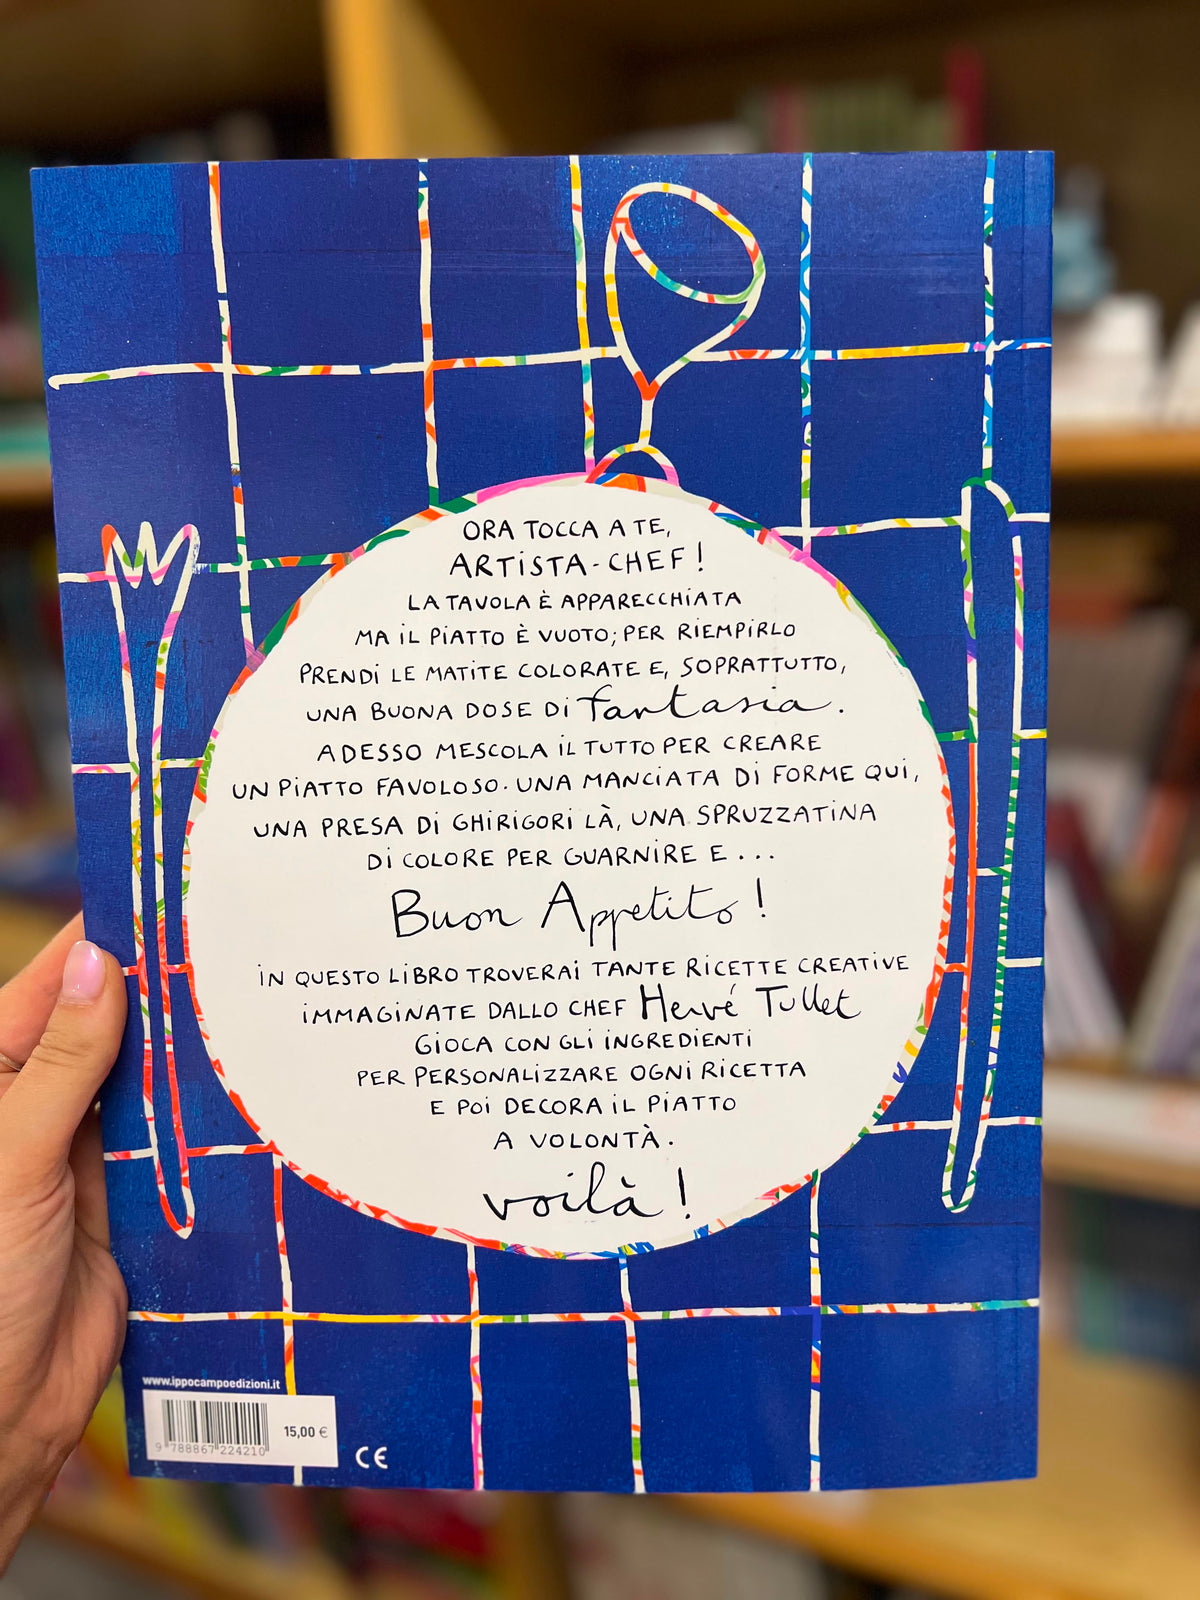 ORA TOCCA A TE,
ARTISTA-CHEF!
LA TAVOLA È APPARECCHIATA
MA IL PIATTO È VUOTO; PER RIEMPIRLO
PRENDI LE MATITE COLORATE E, SOPRATTUTTO,
UNA BUONA DOSE DI fantasia.
ADESSO MESCOLA IL TUTTO PER CREARE
UN PIATTO FAVOLOSO. UNA MANCIATA DI FORME QUI,
UNA PRESA DI GHIRIGORI LÀ, UNA SPRUZZATINA
DI COLORE PER GUARNIRE E...
Buon Appetito!
IN QUESTO LIBRO TROVERAI TANTE RICETTE CREATIVE
IMMAGINATE DALLO CHEF Hervé Tullet
GIOCA CON GLI INGREDIENTI
PER PERSONALIZZARE OGNI RICETTA
E POI DECORA IL PIATTO
A VOLONTÀ.
voilà!
www.ippocampoedizioni.it
15,00 €
9 788867 224210
CE